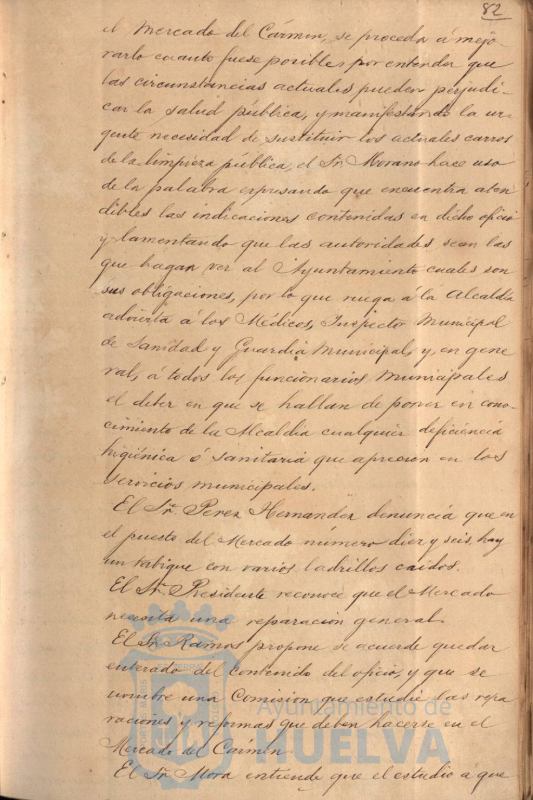 82
el Mercado del Cármen, se proceda á mejo-
rarlo cuanto fuese posible, por entender que
las circunstancias actuales pueden perjudi-
car la salud pública, y manifestando la ur-
gente necesidad de sustituir los actuales carros
de la limpieza pública, el Sr. Morano hace uso
de la palabra expresando que encuentra aten-
dibles las indicaciones contenidas en dicho oficio
y lamentando que las autoridades sean las
que hagan ver al Ayuntamiento cuales son
sus obligaciones, por lo que ruega á la Alcaldía
advierta á los Médicos, Inspector Municipal
de Sanidad y Guardia Municipal, y, en gene-
ral, á todos los funcionarios Municipales
el deber en que se hallan de poner en cono-
cimiento de la Alcaldía cualquier deficiencia
higiénica ó sanitaria que aprecien en los
servicios municipales.
El Sr. Perez Hernandez denuncia que en
el puesto del Mercado número diez y seis, hay
un tabique con varios ladrillos caidos.
El Sr. Presidente reconoce que el Mercado
necesita una reparación general.
El Sr. Ramos propone se acuerde quedar
enterado del contenido del oficio, y que se
nombre una Comision que estudie las repa-
raciones y reformas que deben hacerse en el
Mercado del Cármen.
El Sr. Mora entiende que el estudio á que
Ayuntamiento de
HUELVA